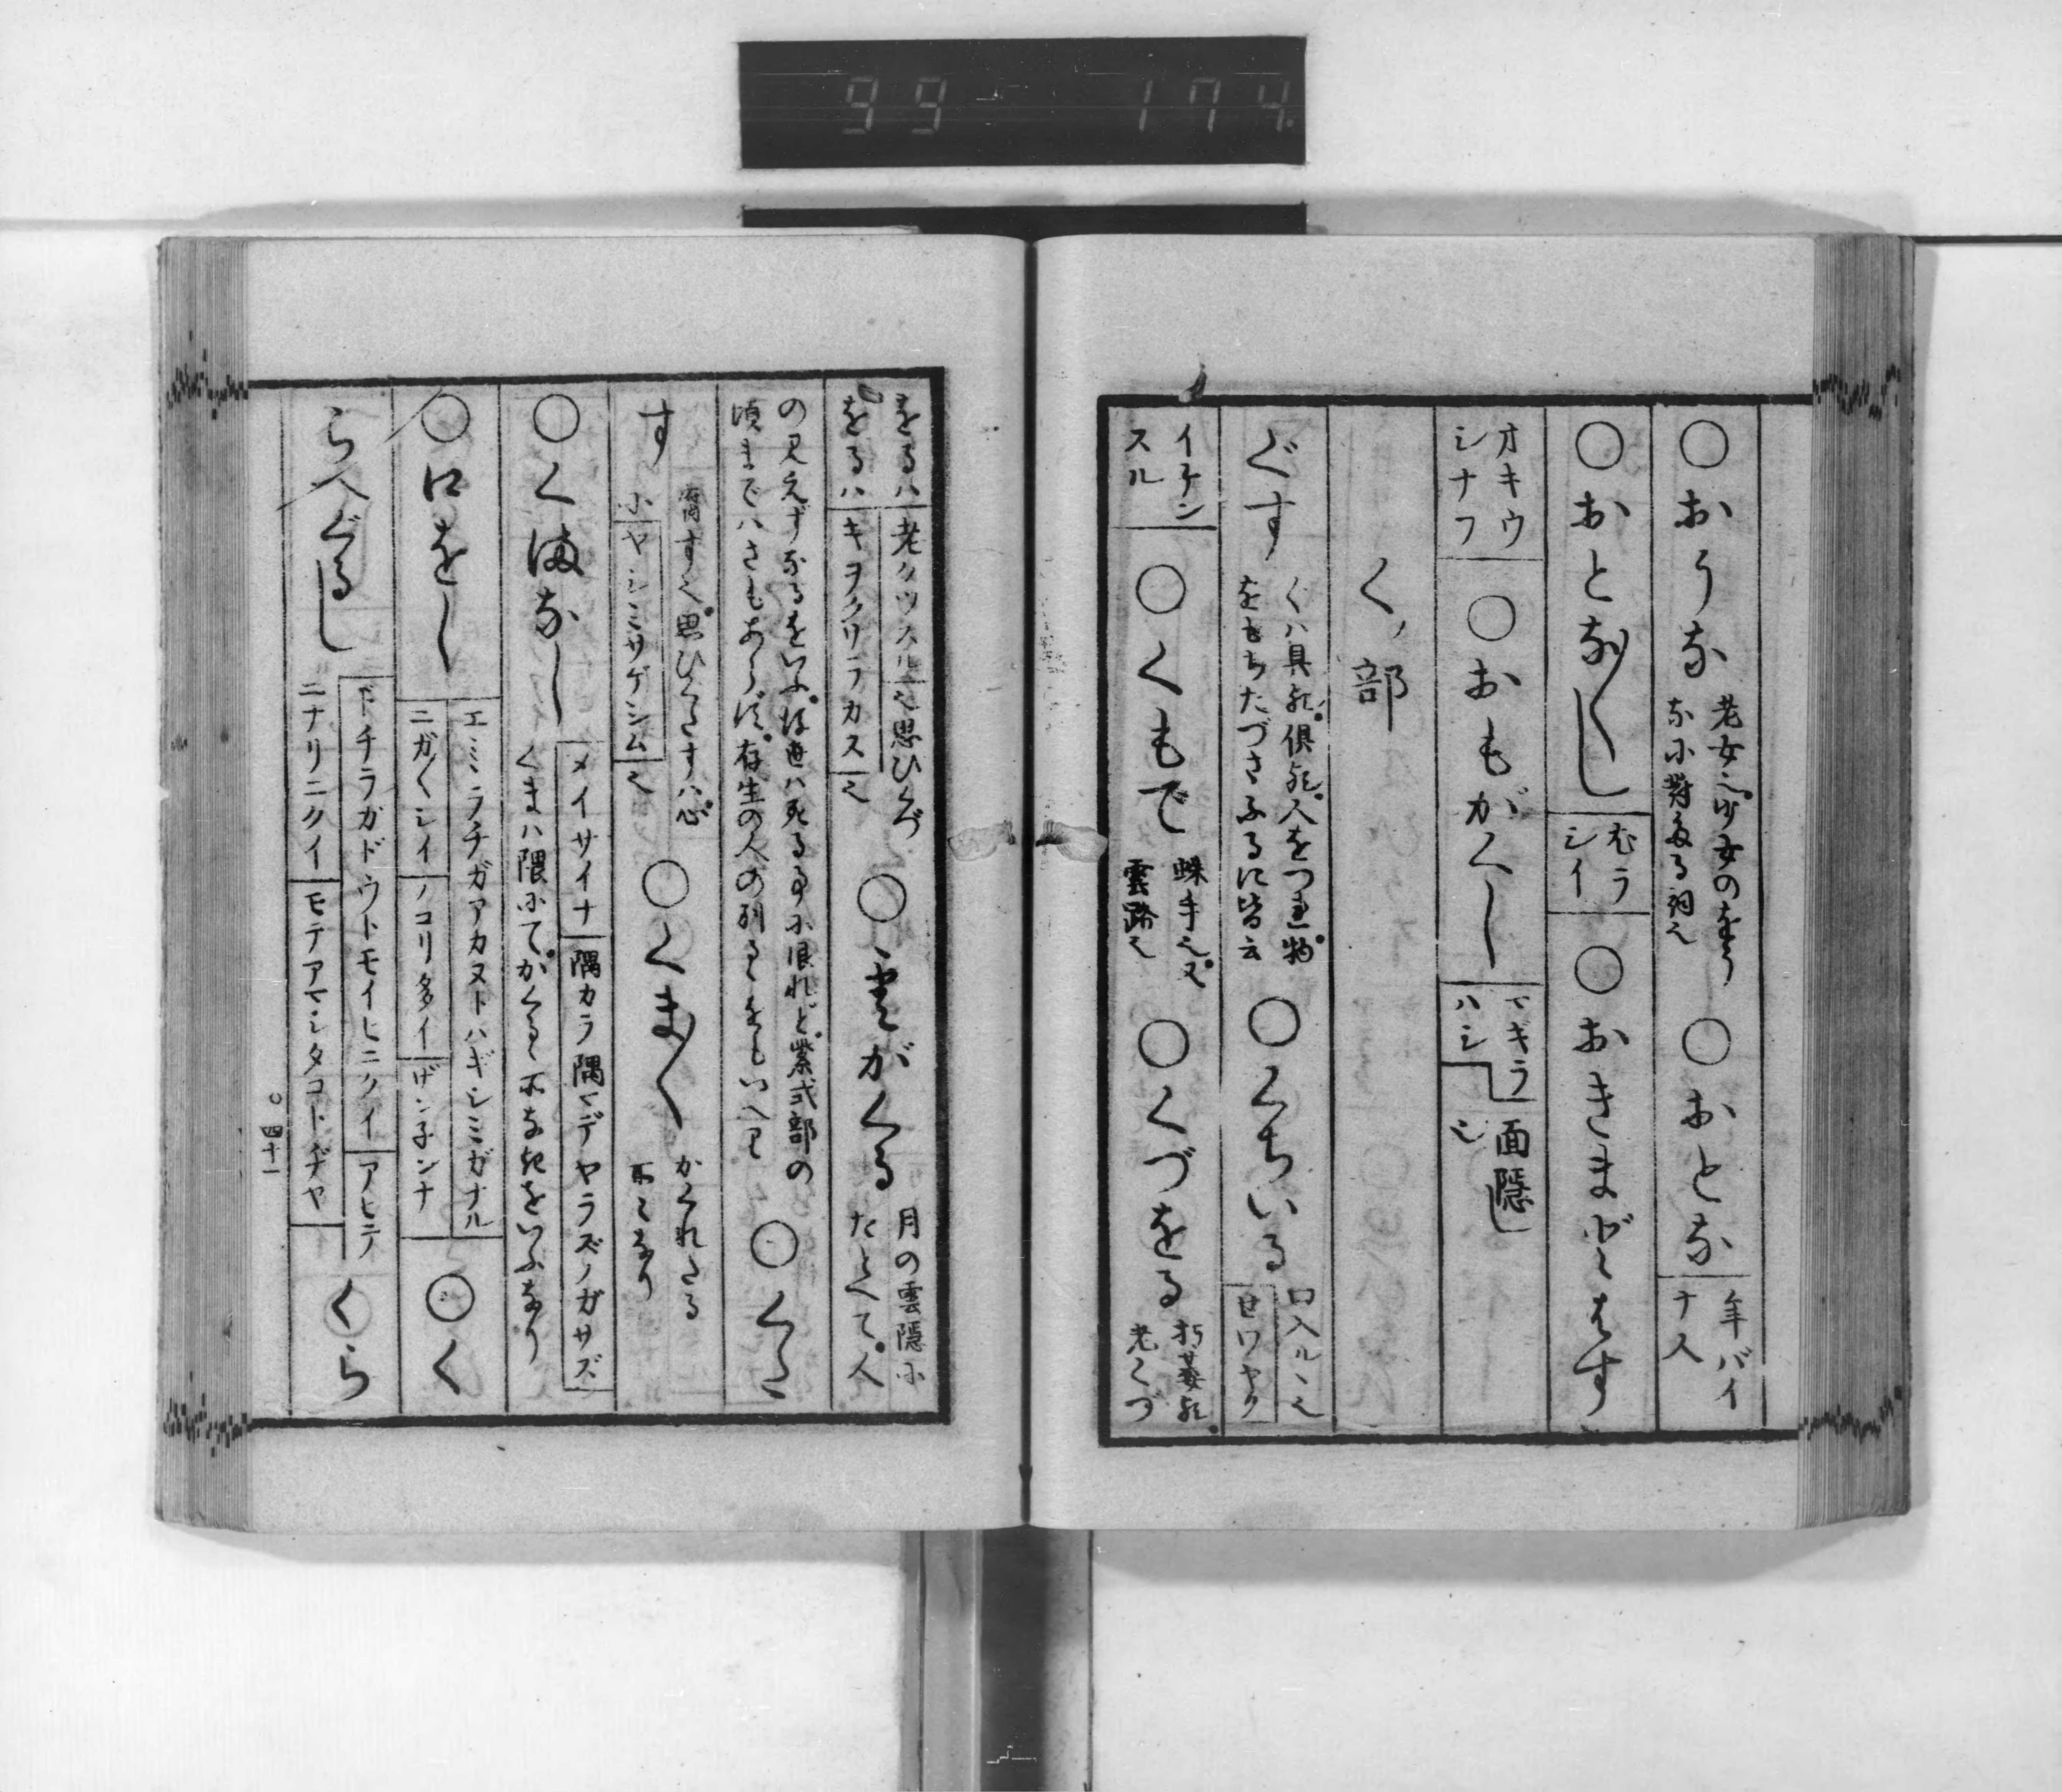 99 174.
○おうな 老女也少女のをう
なに對する詞也 ○おとな 年バイ
ナ人
○おとな〳〵し むラ
シイ ○おきまどはす
オキウ
シナフ ○おもがくし マギラ
ハシ 面隠し
く部
ぐす くハ具也倶也人をつれ物
をもちたづさふるに皆云 ○くちいる 口入ル也
セワヤク
イケン
スル ○くもで 蛛手也又
雲路也 ○くづをる 朽萎也
老くづ
をるハ老クツスル也思ひくづ
をるハキヲクサラカス也 ○雲がくる 月の雲隠に
たとへて人
の見えずなるをいふ後世ハ死る事に限れど紫式部の
頃まではさもあらず存生の人の別るゝをもいへり ○くた
す 腐すく思ひくたすハ心
にヤシミサゲシム也 ○くま〳〵 かくれたる
所々なり
○くまなし メイサイナ 隅カラ隅マデヤラズノガサズ
くまハ隈にてかくるゝ所なきをいふなり
○口をし エミラチガアカヌトハギシミガナル
ニガ〳〵シイ ノコリ多イ ゲン子ンナ ○く
らべぐるし ドチラガドウトモイヒニクイ アヒテ
ニナリニクイ モテアマシタコトヂヤ くら
○四十一